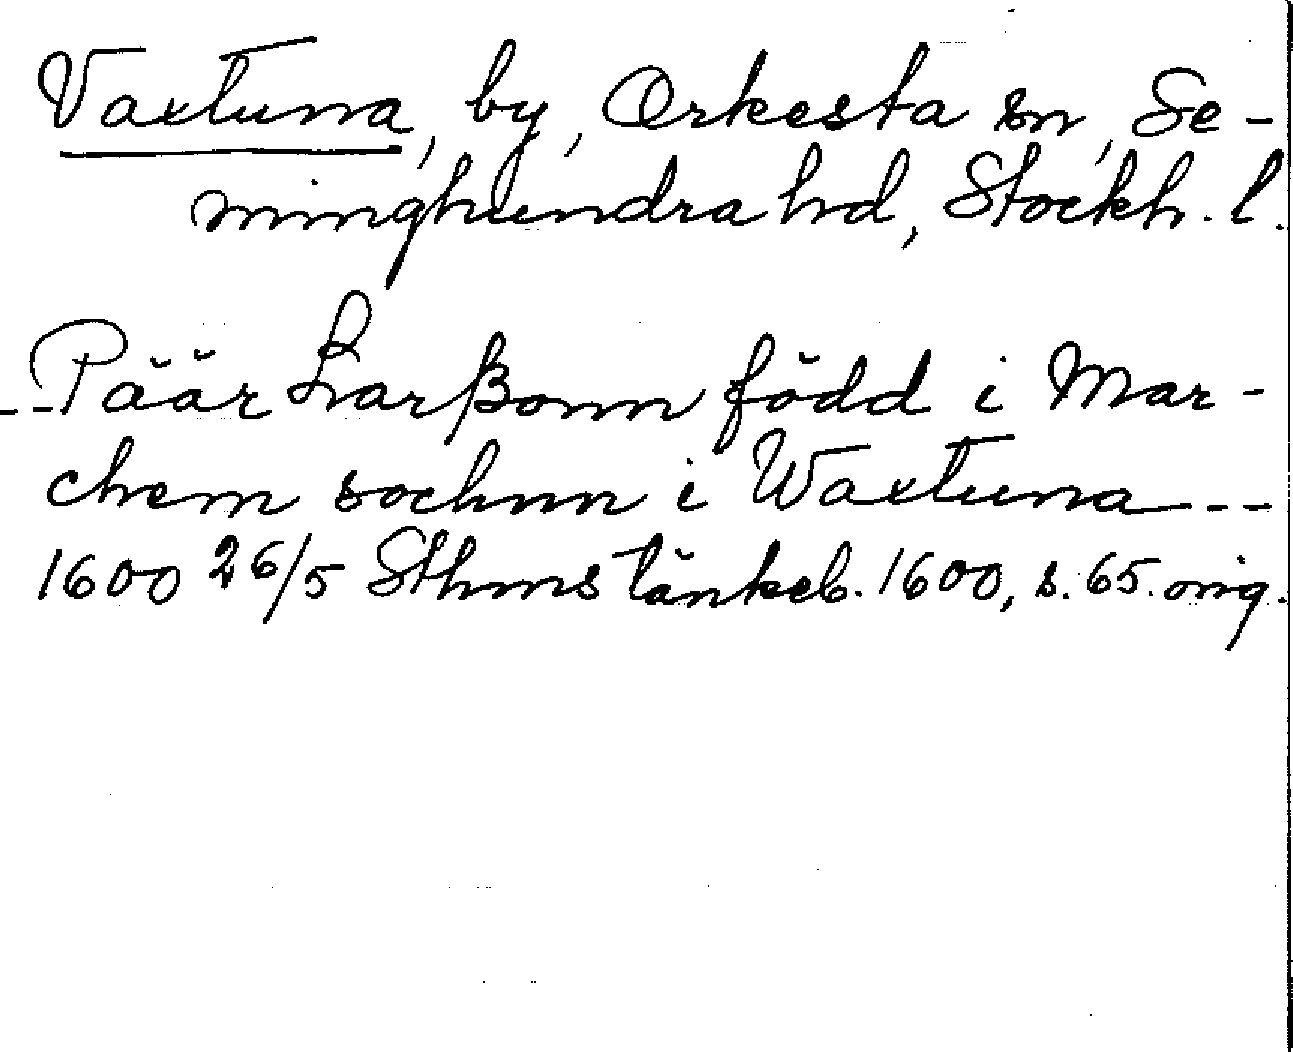 Vaxtuna, by, Orkesta sn, Se-
minghundra hd, Stockh. l.
--Päär Larßonn född i Mar-
chem sochnn i Waxtuna---
1600 26/5 Sthms tänkeb. 1600, s. 65. orig.